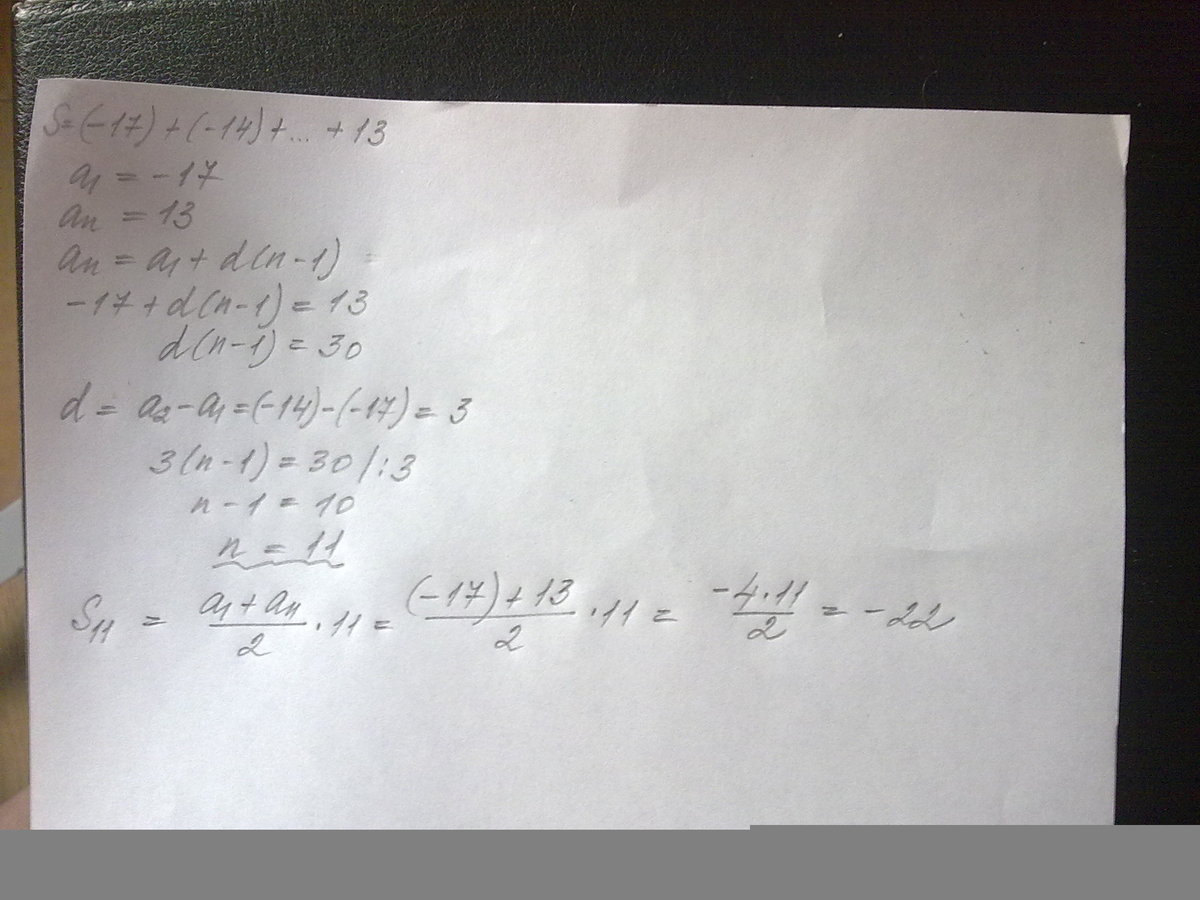 S=(-17)+(-14)+...+13
a₁ = -17
aₙ = 13
aₙ = a₁ + d(n-1) =
-17 + d(n-1) = 13
d(n-1) = 30
d = a₂ - a₁ = (-14)-(-17) = 3
3(n-1) = 30 /:3
n - 1 = 10
n = 11
S₁₁ = (a₁ + aₙ)/2 · 11 = ((-17)+13)/2 · 11 = (-4·11)/2 = -22